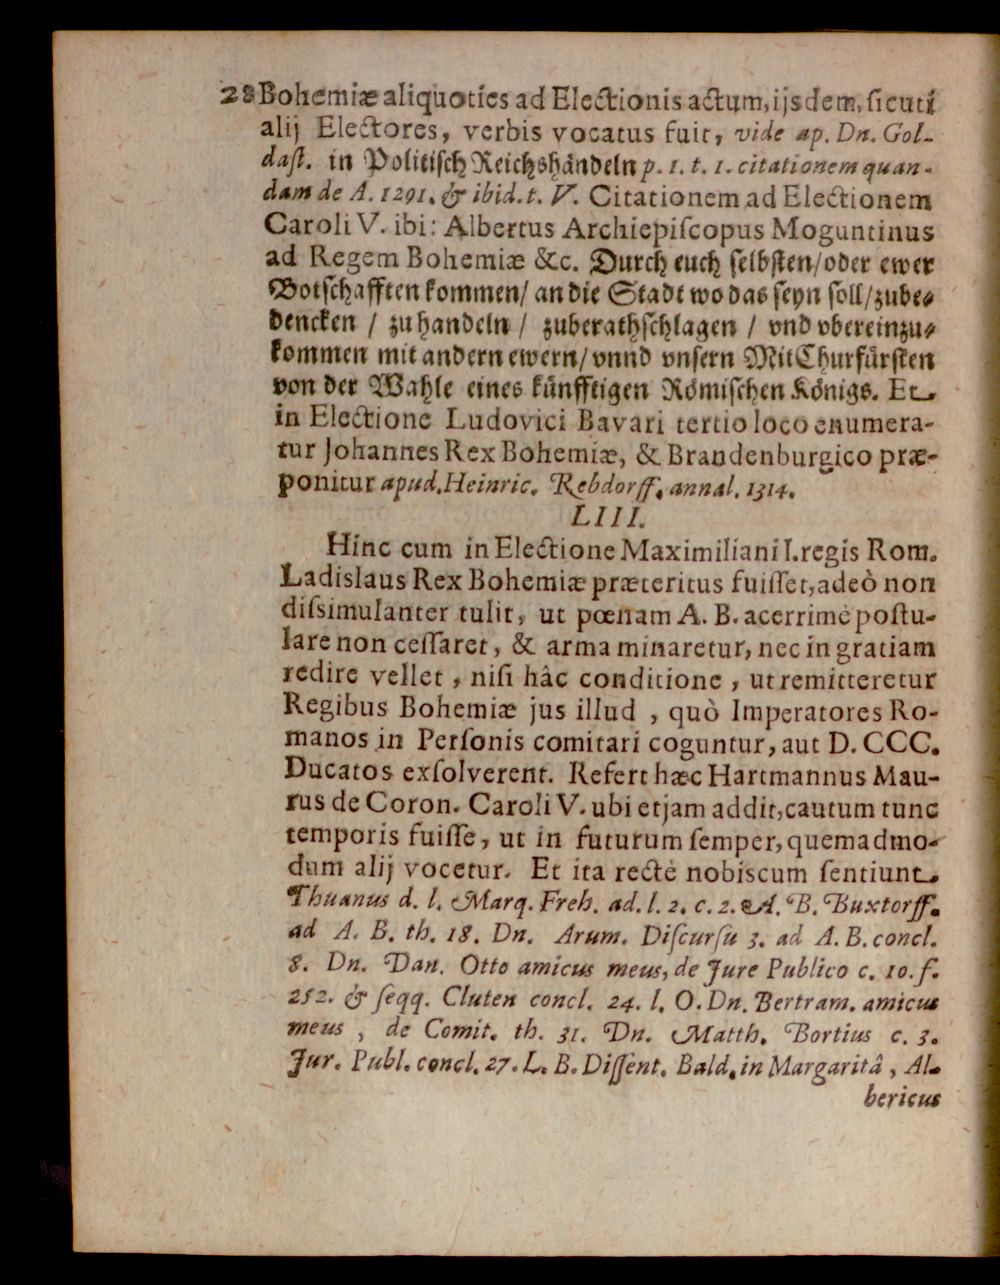 28 Bohemiæ aliquoties ad Electionis actum, ijsdem, ſicuti
alij Electores, verbis vocatus fuit, vide ap. Dn. Gol-
daſt. in Politiſch Reichshåndeln p. 1. t. 1. citationem quan-
dam de A. 1291. & ibid. t. V. Citationem ad Electionem
Caroli V. ibi: Albertus Archiepiſcopus Moguntinus
ad Regem Bohemiæ &c. Durch euch ſelbſten/oder ewer
Botſchafften kommen/ an die Stadt wo das ſeyn ſoll/zube-
dencken / zu handeln / zuberathſchlagen / vnd vbereinzu-
kommen mit andern ewern/ vnnd vnſern MitChurfůrſten
von der Wahle eines kůnfftigen Rőmiſchen Kőnigs. Et
in Electione Ludovici Bavari tertio loco enumera-
tur Johannes Rex Bohemiæ, & Brandenburgico præ-
ponitur apud. Heinric. Rebdorff. annal. 1314.
LIII.
Hinc cum in Electione Maximiliani I. regis Rom.
Ladislaus Rex Bohemiæ præteritus fuiſſet, adeò non
diſsimulanter tulit, ut pœnam A. B. acerrimè poſtu-
lare non ceſſaret, & arma minaretur, nec in gratiam
redire vellet, niſi hâc conditione, ut remitteretur
Regibus Bohemiæ jus illud, quò Imperatores Ro-
manos in Perſonis comitari coguntur, aut D. CCC.
Ducatos exſolverent. Refert hæc Hartmannus Mau-
rus de Coron. Caroli V. ubi etjam addit, cautum tunc
temporis fuiſſe, ut in futurum ſemper, quemadmo-
dum alij vocetur. Et ita rectè nobiscum ſentiunt
Thuanus d. l. Marq. Freh. ad. l. 2. c. 2. A. B. Buxtorff.
ad A. B. th. 18. Dn. Arum. Diſcurſu 3. ad A. B. concl.
8. Dn. Dan. Otto amicus meus, de Jure Publico c. 10. f.
252. & ſeqq. Cluten concl. 24. l. O. Dn. Bertram. amicus
meus, de Comit. th. 31. Dn. Matth. Bortius c. 3.
Jur. Publ. concl. 27. L. B. Diſſent. Bald. in Margaritâ, Al-
bericus